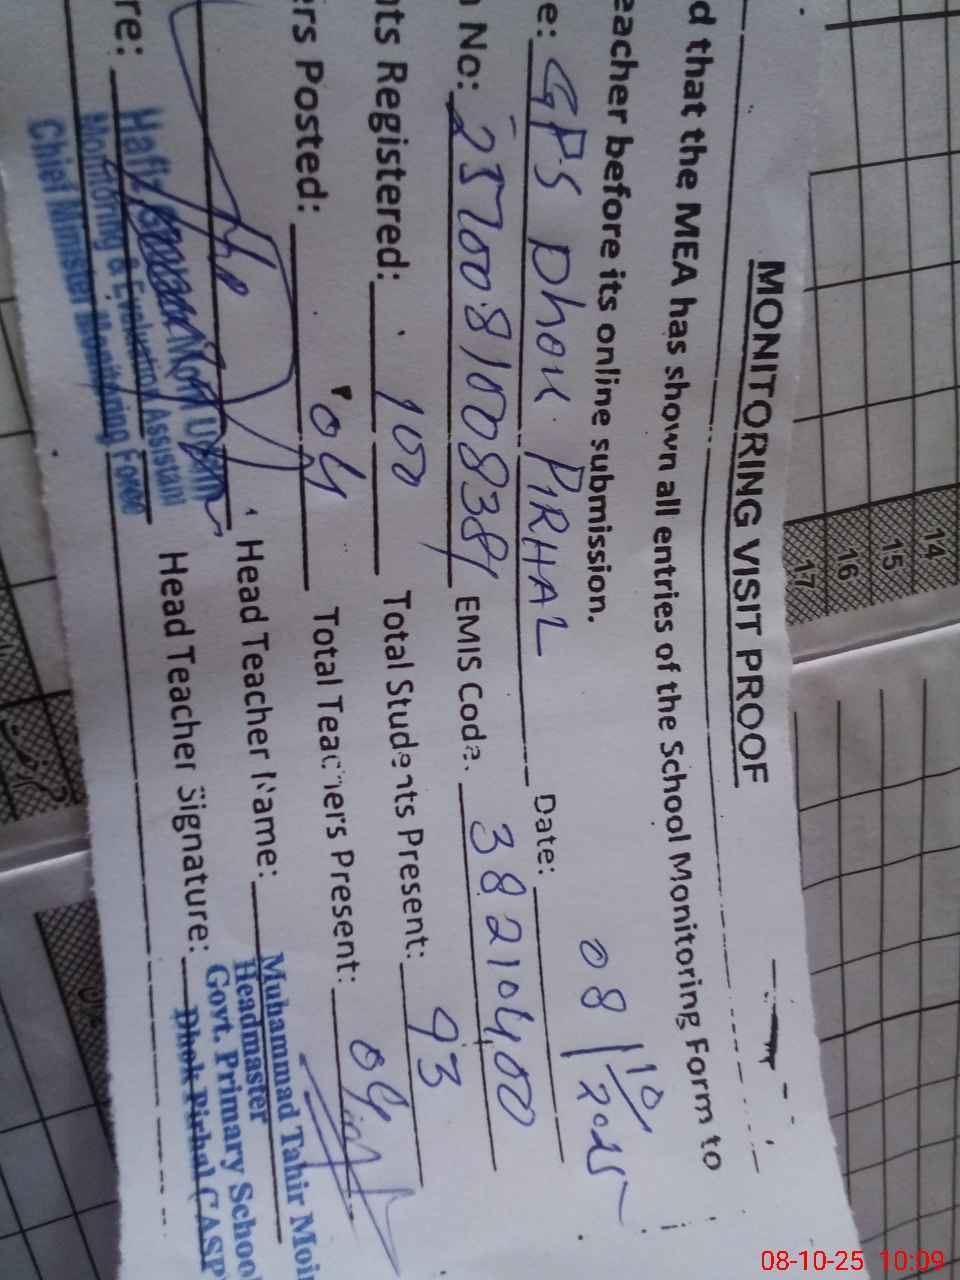 MONITORING VISIT PROOF
d that the MEA has shown all entries of the School Monitoring Form to
eacher before its online submission.
e: GPS Dhok PIRHAL Date: 08/10/2025
No: EMIS Code. 38210400
nts Registered: 100 Total Students Present: 93
ers Posted: 04 Total Teachers Present: 04
Head Teacher Name: Muhammad Tahir Moin
Headmaster
re: Head Teacher Signature: Govt. Primary School
Dhok Pirhal CASP
Hafiz
Monitoring & Evaluation Assistant
Chief Minister Monitoring Force
14
15
16
17
08-10-25 10:09